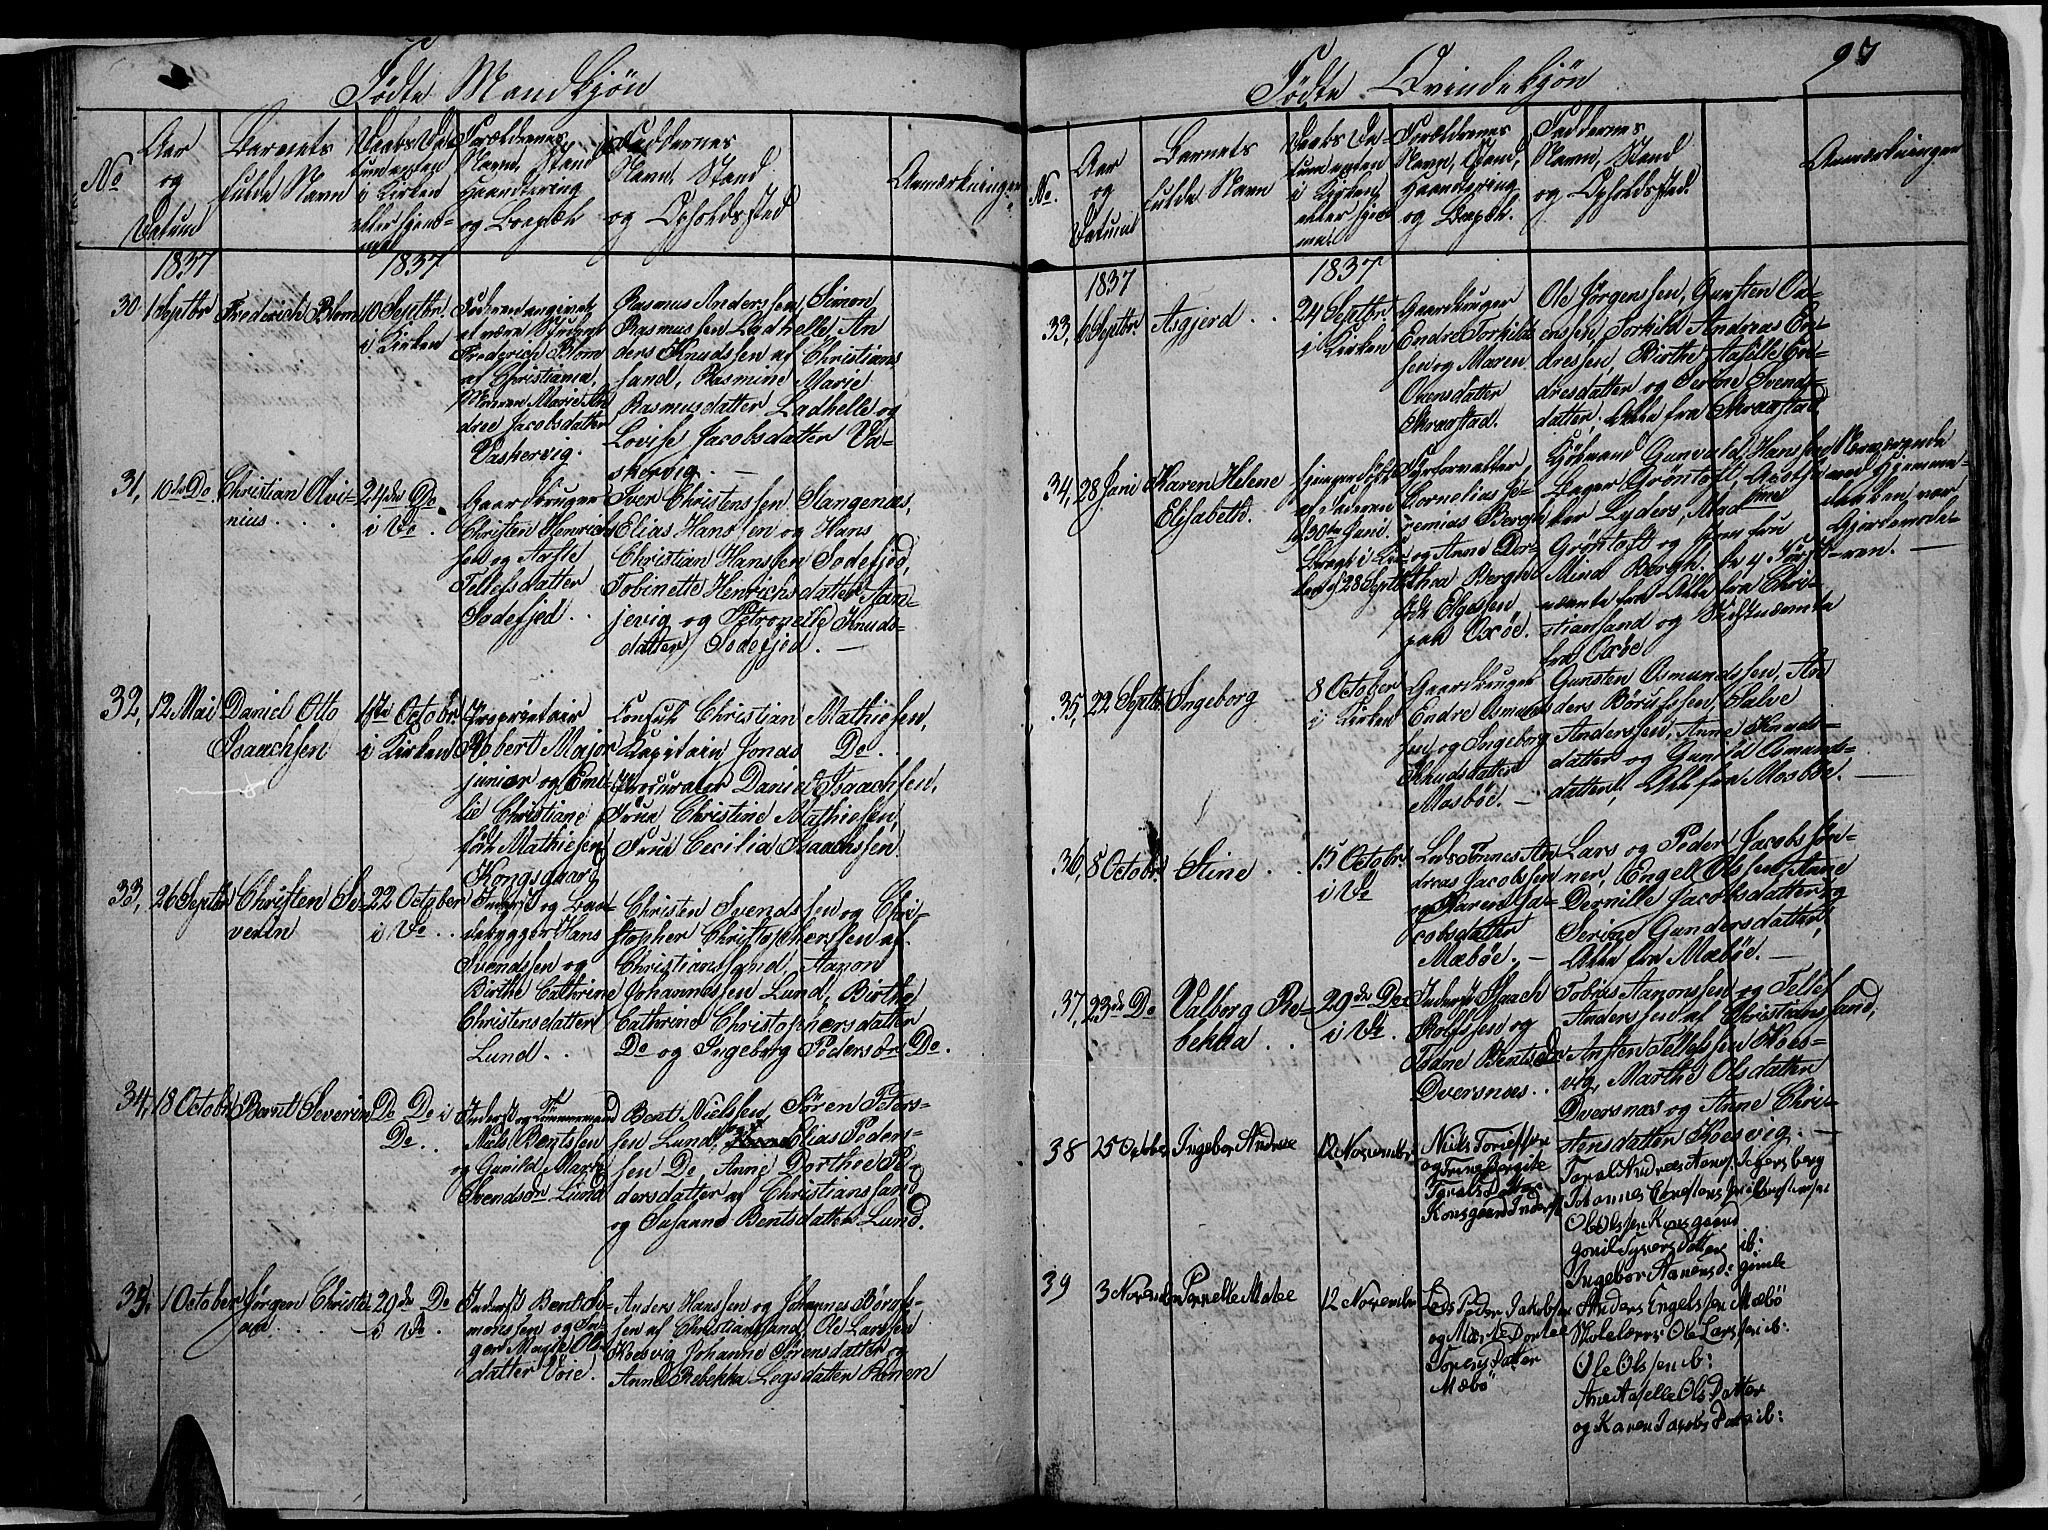 Fødte Mandkjøn
No
Aar
og
Datum
Barnets
fulde Navn
Daabs Da-
tum enten
i Kirken
eller hjem-
me
Forældrenes
Navn, Stand
Haandtering
og Bopæl
Faddernes
Navn, Stand
og Opholdssted
Anmærkninger
1837
1837
30 1 Septbr
Frederich Blom
10 Septbr.
i Kirken
Faderen angivet
at være Student
Frederich Blom
af Christiania,
Moderen Marie An
dree Jacobsdatter
Vashervig.
Rasmus Anderssen, Simon
Rasmussen Ladhelle An
ders Knudssen af Christians
sand, Rasmine Marie
Rasmusdatter Ladhelle og
Lovise Jacobsdatter Va-
shervig. —
31, 10de Do
Christian Olvi-
nius. . . .
24de Do
i Do .
Gaardbruger
Christen Henrich
sen og Aasle
Tellefsdatter
Sodefjed . .
Iver Christenssen Stangenæs,
Elias Hanssen og Hans
Christian Hanssen Sodefjed,
Tobinette Henrichsdatter Aan-
jevig og Petronelle Knuds-
datter Sodefjed. —
32, 12 Mai
Daniel Otto
Isaachsen
1ste October
i Kirken
Proprietair
Robert Major
junior og Emi-
lie Christiane
født Mathiesen
Kongsgaard
Consul Christian Mathiesen,
Kapitain Jonas Do . .
Procurator Daniel Isaachsen,
Frue Christine Mathiesen,
Frue Cecilia Isaachsen.
33, 26 Septbr
Christen Se-
verin
22 October
i Do . .
Inderst og Baa-
debygger Hans
Svendssen og
Birthe Cathrine
Christensdatter
Lund . .
Christen Svendssen og Chri-
stopher Christopherssen af
Christianssand, Aanon
Johannessen Lund, Birthe
Cathrine Christophersdatter
Do og Ingeborg Pedersdr Do.
34, 18 Octobr
Bernt Severin
Do Do i
Do . .
Inderst og Tømmermand
Niels Bentssen
og Gunild Marie
Svendsdr Lund
Bent Nielssen, Søren Peters-
sen Lund, Elias Peders-
sen Do, Anne Dorthee Pe-
dersdatter af Christianssand
og Susanne Bentsdatter Lund.
35. 1 October
Jørgen Christi
an . . .
29de Do
i Do .
Inderst Bent Si-
monssen og In-
ger Marie Ols-
datter Voie.
Anders Hanssen og Johannes Børufs-
sen af Christianssand, Ole Larssen
Koesvig, Johanne Sørensdatter og
Anne Rebekka Legsdatter Ronen
Fødte Qvindekjøn
97
No.
Aar
og
Datum
Barnets
fulde Navn
Daabs Da-
tum enten
i Kirken
eller hjem
me.
Forældrenes
Navn, Stand,
Haandtering
og Bopæl.
Faddernes
Navn, Stand
og Opholdssted.
Anmærkninger
1837
1837
33, 6 Septbr
Asgjerd . .
24 Septbr
i Kirken
Gaardbruger
Endre Torkild
sen og Maren
Ovensdatter
Skraastad.
Ole Jørgenssen, Gunsten Ou-
enssen, Torkild Andreas En-
dressen, Birthe Aaselle En-
dresdatter og Serine Svends-
datter, Alle fra Skraastad,
34, 28 Juni
Karen Helene
Elisabeth.
Hjemmedøbt
af Faderen
d 30te Juni.
Bragt i Kir-
ken d 28 Septbr
Fyrforvalter
Cornelius Je-
remias Bergh
og Anne Dor-
thea Bergh
født Elgessen,
paa Oxøe.
Kjøbmand Gunvald Hanssen
Bager Grøntoft, Apothe-
ker Lyders, Madame
Grøntoft og Jomfru
Mina Bergh. De 4 Først-
nævnte fra Chri-
stianssand og Sidstnævnte
fra Oxøe
Nærværende
ved Hjemme-
daaben, var
Gjordemode-
ren. —
35, 22 Septbr
Ingeborg
8 October
i Kirken
Gaardbruger
Endre Osmunds
sen og Ingeborg
Knudsdatter
Mosbøe. —
Gunsten Osmundssen, An
ders Børufssen, Salve
Anderssen, Anne Knuds-
datter og Gunild Osmunds-
datter, Alle fra Mosbøe. —
36, 8 Octobr.
Stine . .
15 Octobr
i Do
Leds Tønnes An
dreas Jacobssen
og Karen Ja-
cobsdatter
Mæbøe. —
Lars og Peder Jacobs Søn-
ner, Engel Olssen, Anne
Pernille Jacobsdatter og
Serine Gundersdatter,
Alle fra Mæbøe. —
37, 23de Do
Valborg Re-
bekka . .
29de Do
i Do .
Inderst Isaach
Rolfssen og
Tone Bentsdr
Dversnæs . .
Tobias Aanonssen og Tellef
Anderssen af Christianssand,
Ansten Tellefssen Koes-
vig, Marthe Olsdatter
Dversnæs og Anne Chri-
stensdatter Koesvig. —
38 25 October
Ingebor Andree
12 November
Niels Torjessen
og Trine Bergite
Torals Datter
Konsgaard Inderst
Toral Andreas Aanes. Jegersberg
Johannes Christens
Ole Olssen Konsgaard
Gonil Syvers Datter ib:
Ingebor Aanensd: gimle
39 3 November
Pernelle Malee
12 November
Leds Peder Jakobsen
og Marte Dortee
Torers Datter
Mæbö
Anders Engelssen Mæbö
Skolelærer Ole Larssen ib:
Ole Olssen ib:
Ane Aaselle Ols Datter
og Karen Jakobs Datter ib: